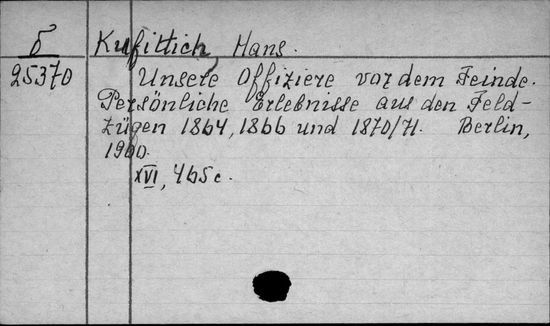 Б Kufittich, Hans.
25370 Unsere Offiziere vor dem Feinde.
Persönliche Erlebnisse aus den Feld-
zügen 1864, 1866 und 1870/71. Berlin,
1900.
XVI, 465 c.